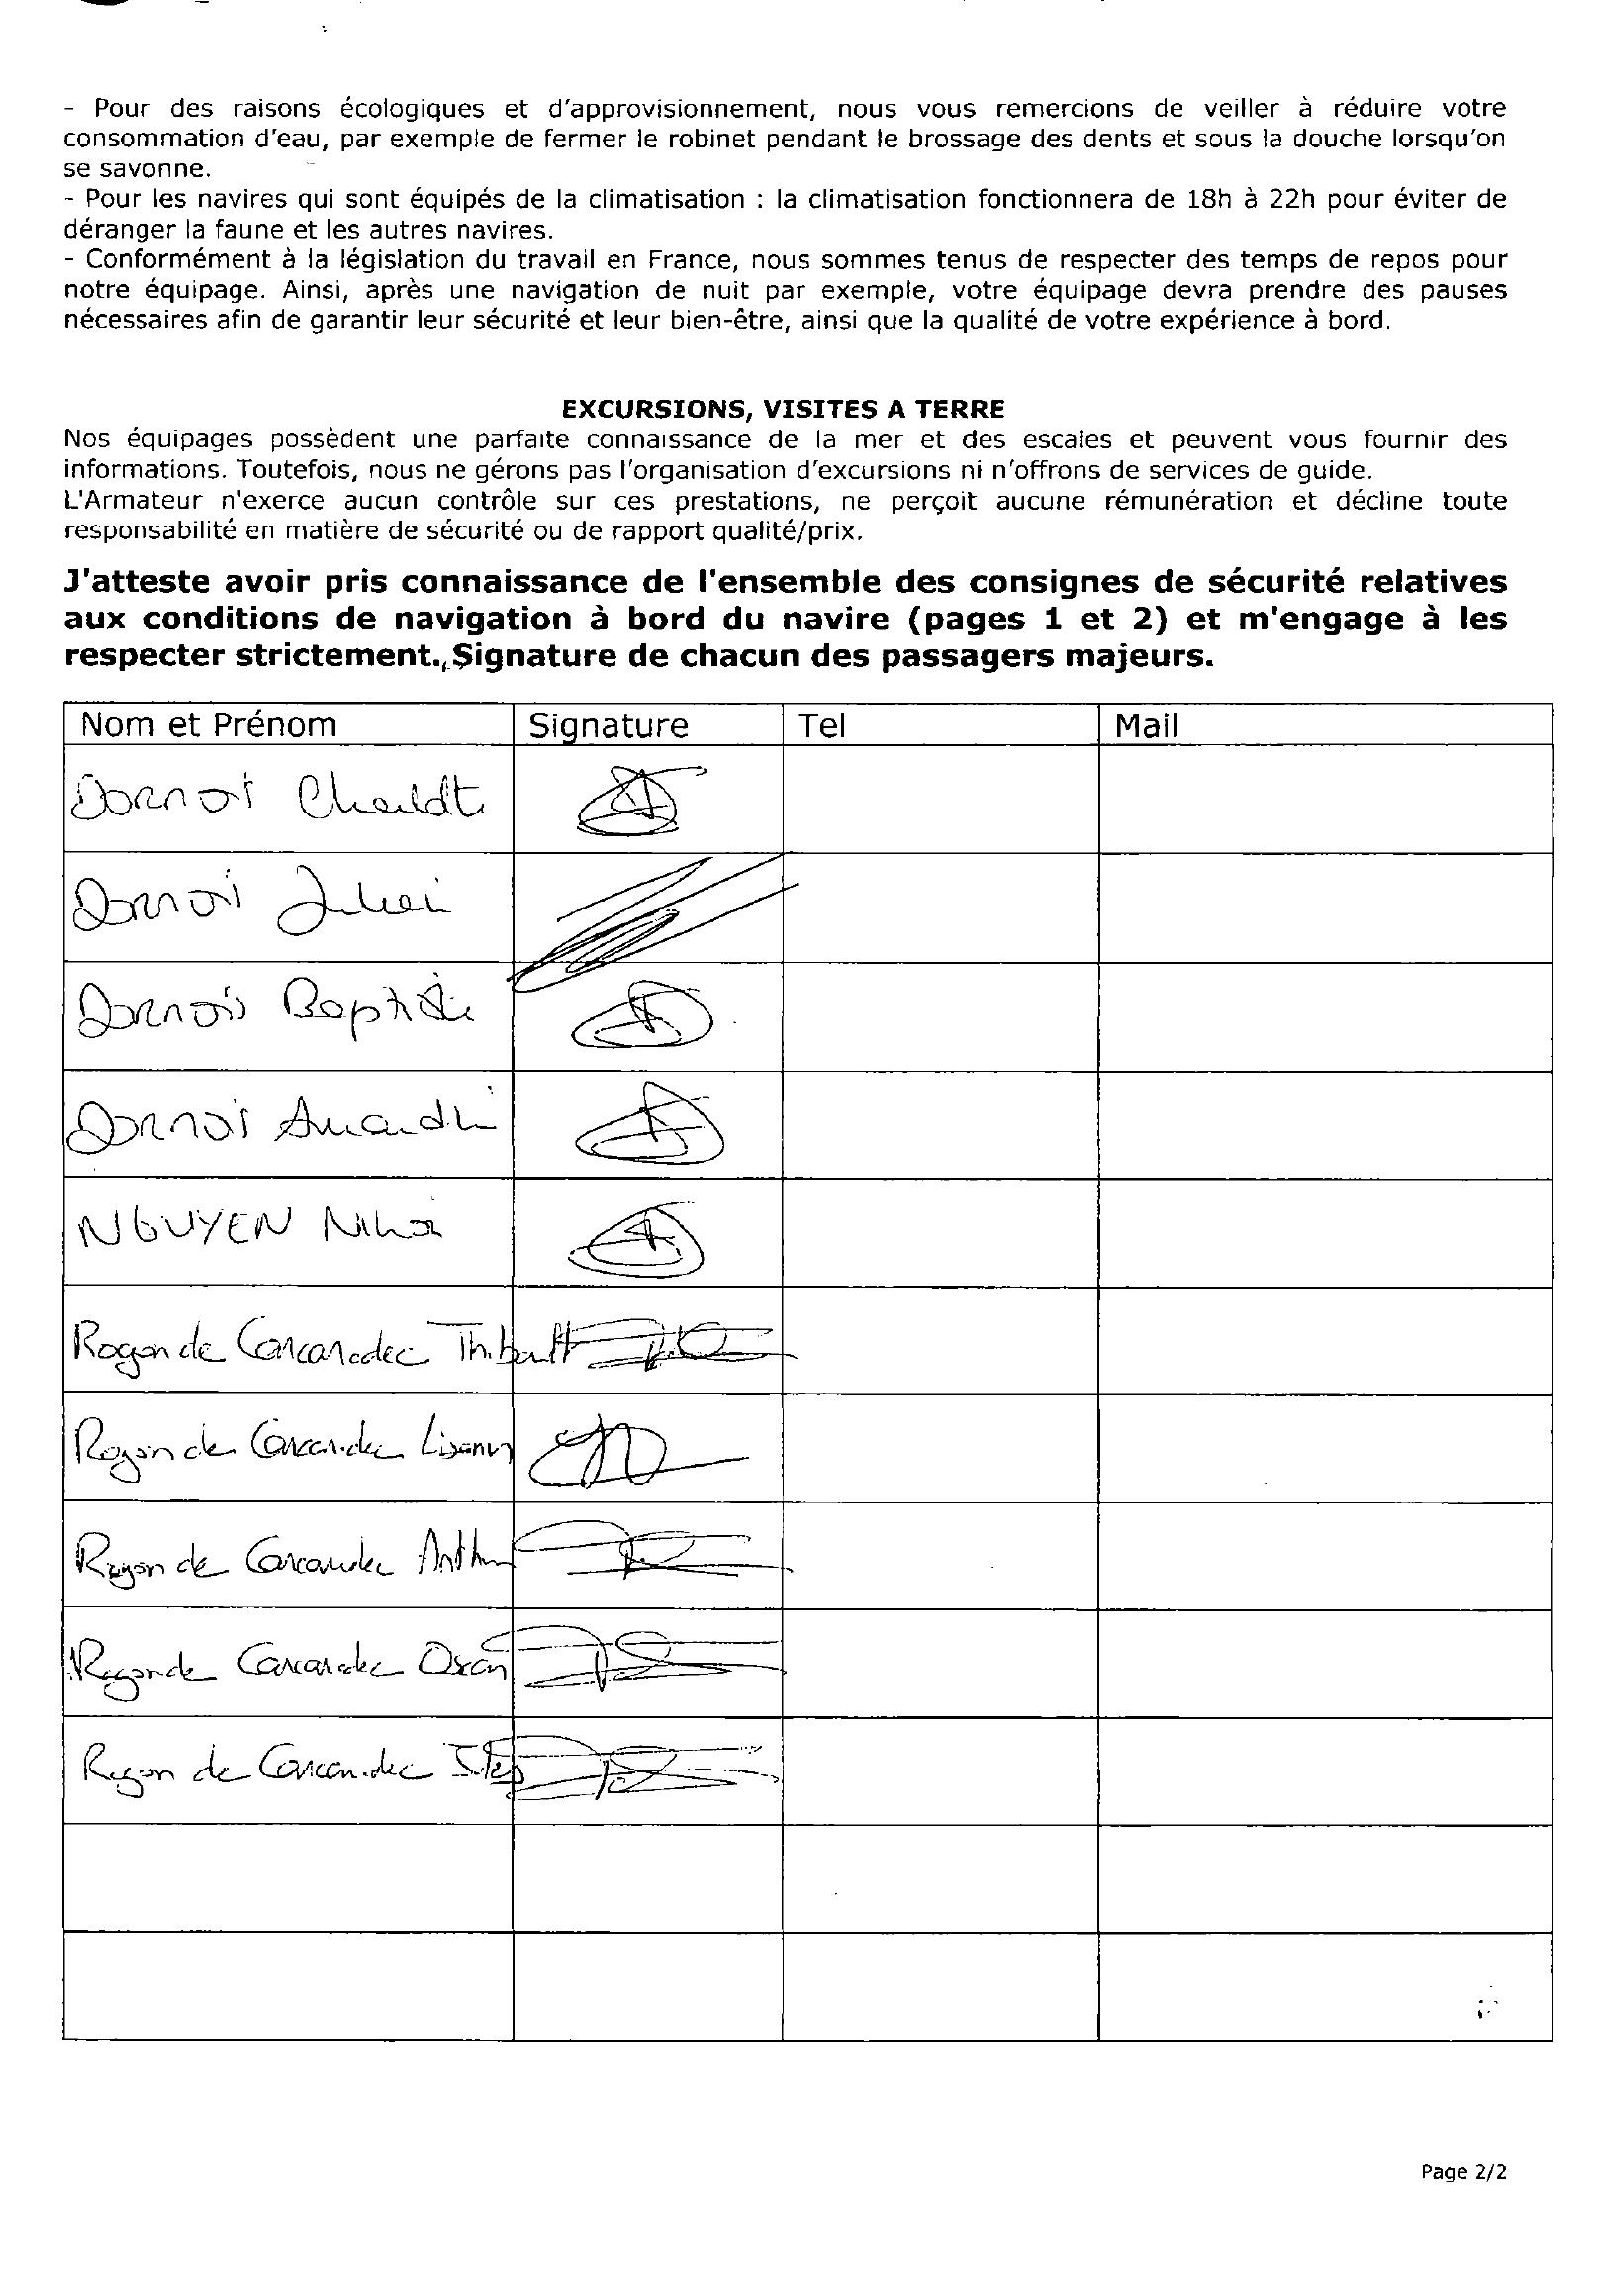 - Pour des raisons écologiques et d'approvisionnement, nous vous remercions de veiller à réduire votre
consommation d'eau, par exemple de fermer le robinet pendant le brossage des dents et sous la douche lorsqu'on
se savonne.
- Pour les navires qui sont équipés de la climatisation : la climatisation fonctionnera de 18h à 22h pour éviter de
déranger la faune et les autres navires.
- Conformément à la législation du travail en France, nous sommes tenus de respecter des temps de repos pour
notre équipage. Ainsi, après une navigation de nuit par exemple, votre équipage devra prendre des pauses
nécessaires afin de garantir leur sécurité et leur bien-être, ainsi que la qualité de votre expérience à bord.
EXCURSIONS, VISITES A TERRE
Nos équipages possèdent une parfaite connaissance de la mer et des escales et peuvent vous fournir des
informations. Toutefois, nous ne gérons pas l'organisation d'excursions ni n'offrons de services de guide.
L'Armateur n'exerce aucun contrôle sur ces prestations, ne perçoit aucune rémunération et décline toute
responsabilité en matière de sécurité ou de rapport qualité/prix.
J'atteste avoir pris connaissance de l'ensemble des consignes de sécurité relatives
aux conditions de navigation à bord du navire (pages 1 et 2) et m'engage à les
respecter strictement. Signature de chacun des passagers majeurs.
Nom et Prénom Signature Tel Mail
Dornois
Dornois Julien
Dornois Baptiste
Dornois
NGUYEN
Rogon de Carcaradec Thibault
Rogon de Carcaradec
Rogon de Carcaradec Arthur
Rogon de Carcaradec Oscar
Rogon de Carcaradec
Page 2/2